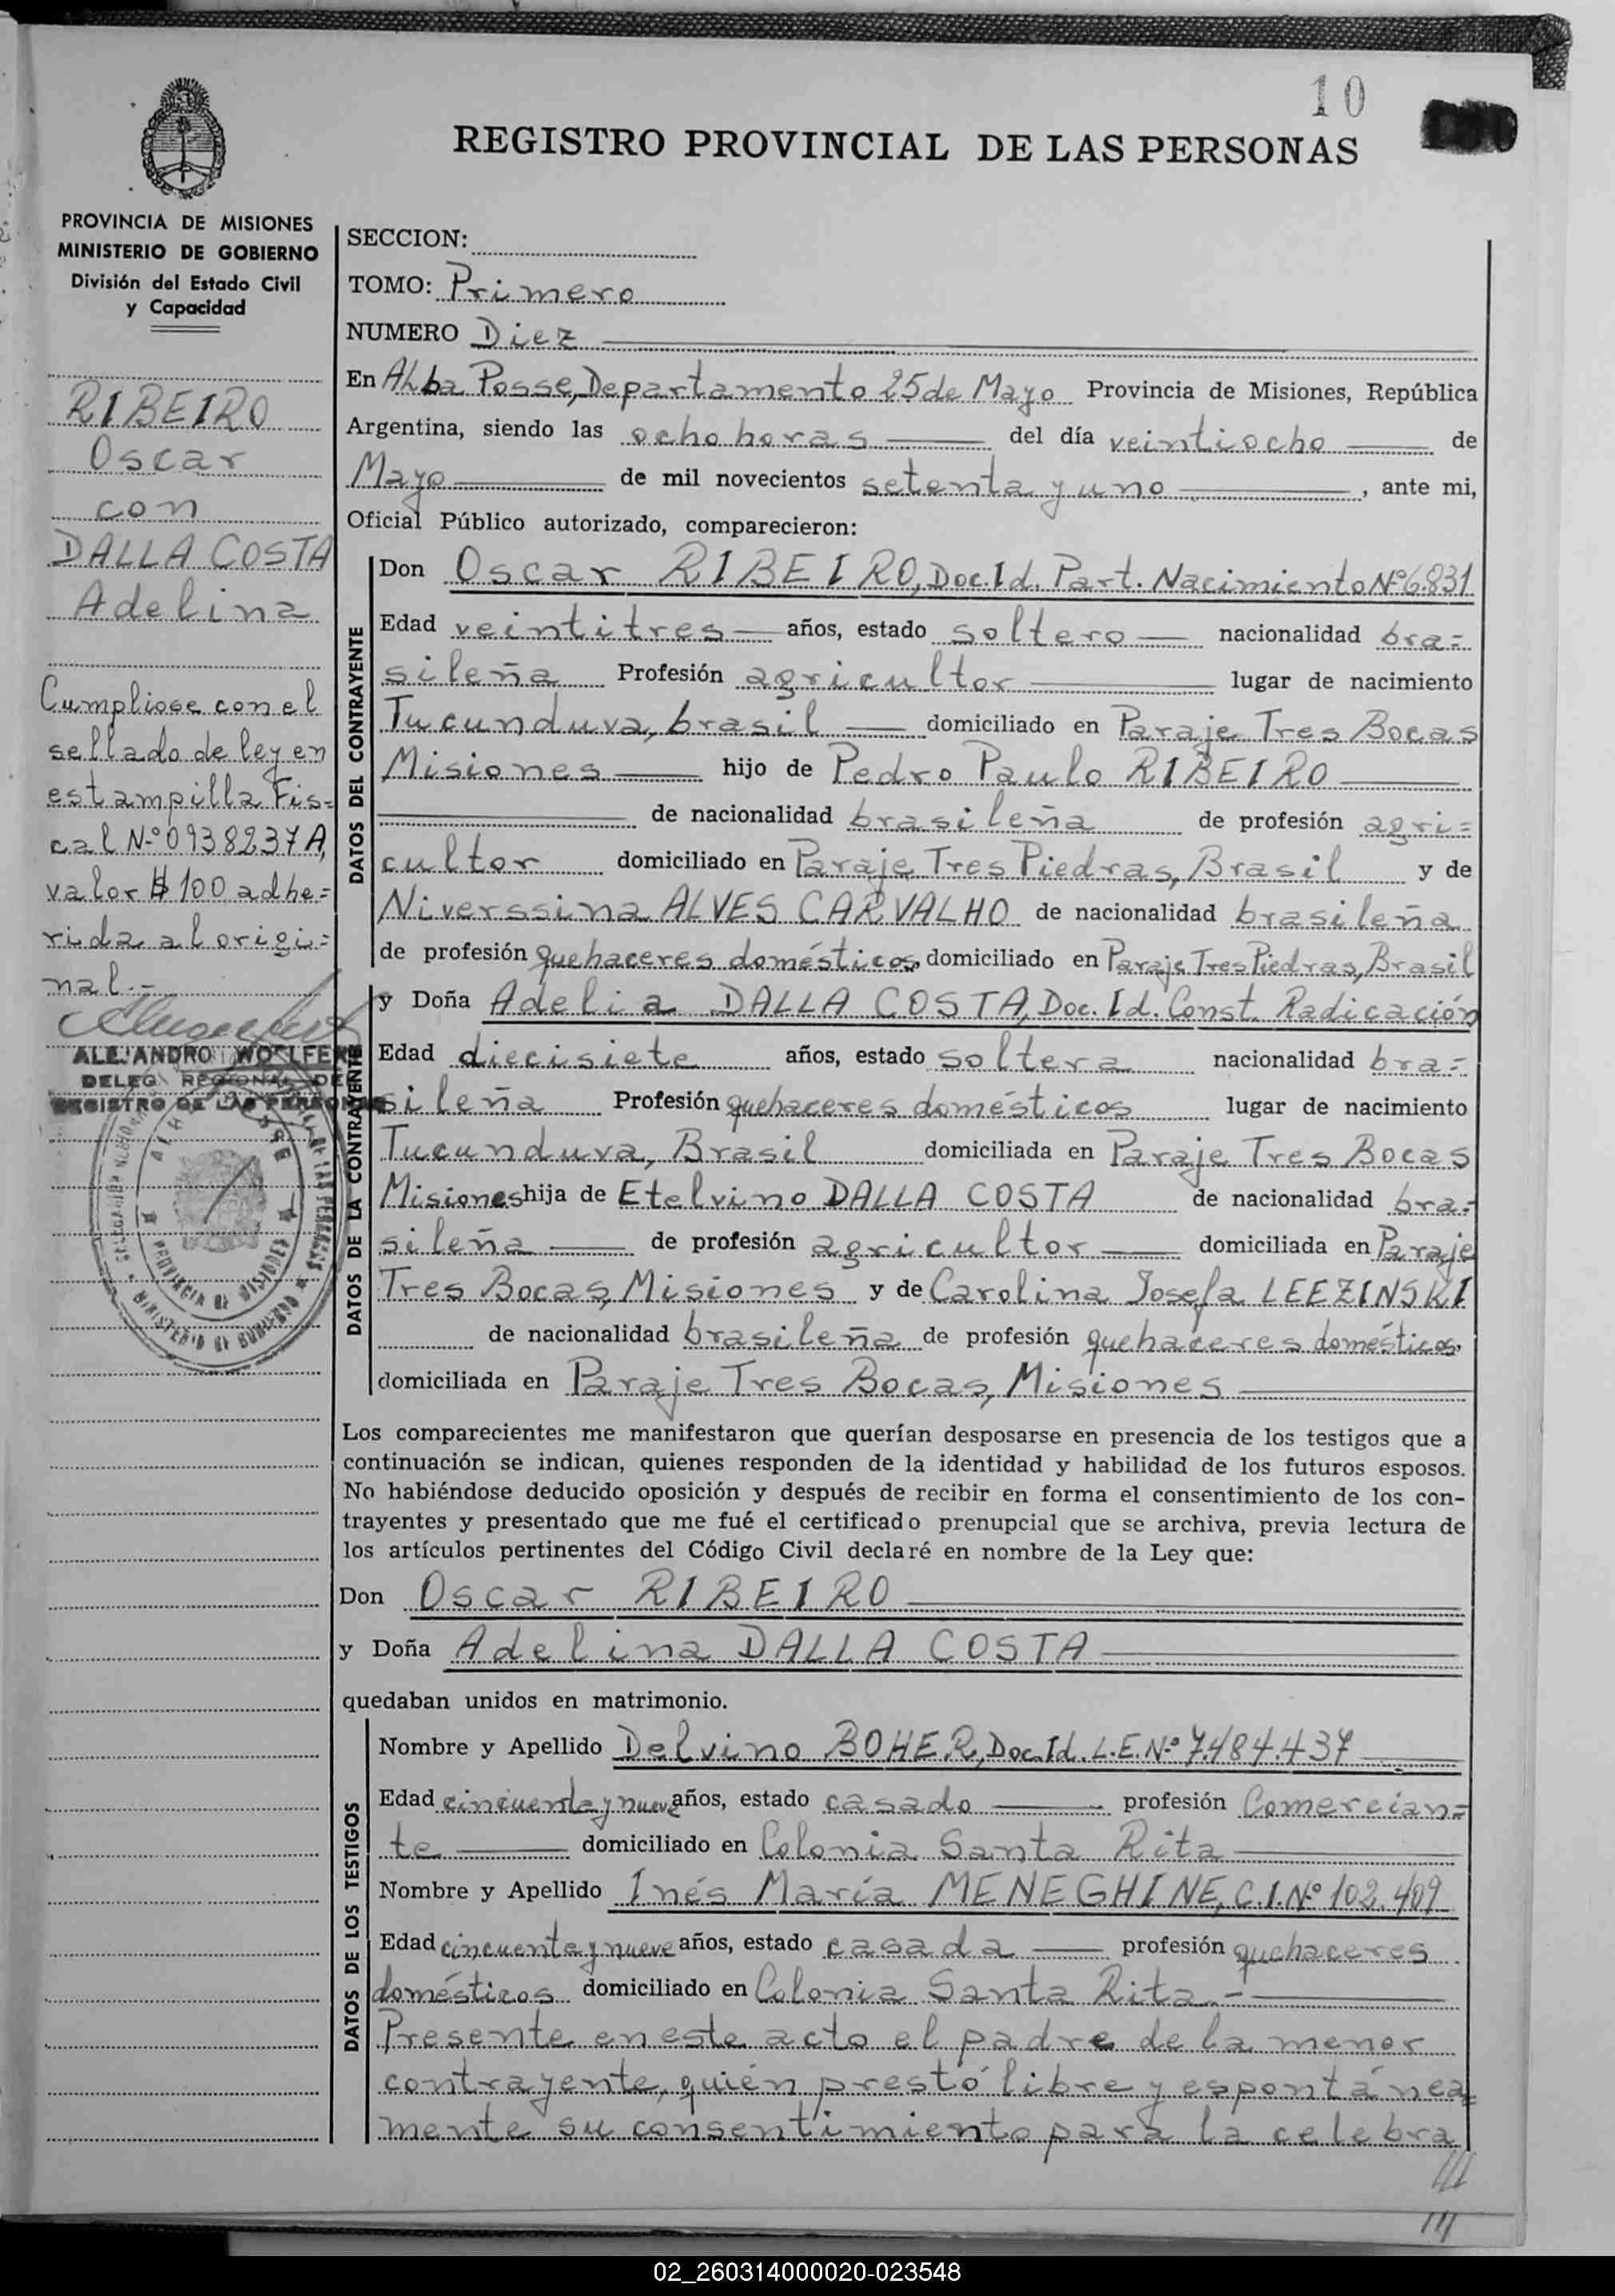 10
REGISTRO PROVINCIAL DE LAS PERSONAS
PROVINCIA DE MISIONES
MINISTERIO DE GOBIERNO
División del Estado Civil
y Capacidad
RIBEIRO
Oscar
con
DALLA COSTA
Adelina
Cumpliose con el
sellado de ley en
estampilla Fis=
cal Nº 0938237 A,
valor $ 100 adhe=
rida al origi=
nal.-
ALEJANDRO WOLFENE
DELEG. REGIONAL DE
REGISTRO DE LAS PERSONAS
PROVINCIA DE MISIONES
MINISTERIO DE GOBIERNO
SECCION:
TOMO: Primero
NUMERO Diez
En Alba Posse, Departamento 25 de Mayo Provincia de Misiones, República
Argentina, siendo las ocho horas del día veintiocho de
Mayo de mil novecientos setenta y uno, ante mi,
Oficial Público autorizado, comparecieron:
DATOS DEL CONTRAYENTE
Don Oscar RIBEIRO, Doc. Id. Part. Nacimiento Nº 6.831
Edad veintitres años, estado soltero nacionalidad bra=
sileña Profesión agricultor lugar de nacimiento
Tucunduva, brasil domiciliado en Paraje Tres Bocas
Misiones hijo de Pedro Paulo RIBEIRO
de nacionalidad brasileña de profesión agri=
cultor domiciliado en Paraje Tres Piedras, Brasil y de
Niverssina ALVES CARVALHO de nacionalidad brasileña
de profesión quehaceres domésticos, domiciliado en Paraje Tres Piedras, Brasil
DATOS DE LA CONTRAYENTE
y Doña Adelia DALLA COSTA, Doc. Id. Const. Radicación
Edad diecisiete años, estado soltera nacionalidad bra=
sileña Profesión quehaceres domésticos lugar de nacimiento
Tucunduva, Brasil domiciliada en Paraje Tres Bocas
Misiones hija de Etelvino DALLA COSTA de nacionalidad bra=
sileña de profesión agricultor domiciliada en Paraje
Tres Bocas, Misiones y de Carolina Josefa LEEZINSKI
de nacionalidad brasileña de profesión quehaceres domésticos,
domiciliada en Paraje Tres Bocas, Misiones
Los comparecientes me manifestaron que querían desposarse en presencia de los testigos que a
continuación se indican, quienes responden de la identidad y habilidad de los futuros esposos.
No habiéndose deducido oposición y después de recibir en forma el consentimiento de los con-
trayentes y presentado que me fué el certificado prenupcial que se archiva, previa lectura de
los artículos pertinentes del Código Civil declaré en nombre de la Ley que:
Don Oscar RIBEIRO
y Doña Adelina DALLA COSTA
quedaban unidos en matrimonio.
DATOS DE LOS TESTIGOS
Nombre y Apellido Delvino BOHER, Doc. Id. L.E. Nº 7.484.437
Edad cincuenta y nueve años, estado casado profesión Comercian=
te domiciliado en Colonia Santa Rita
Nombre y Apellido Inés María MENEGHINE, C.I. Nº 102.409
Edad cincuenta y nueve años, estado casada profesión quehaceres
domésticos domiciliado en Colonia Santa Rita.-
Presente en este acto el padre de la menor
contrayente, quién prestó libre y espontánea=
mente su consentimiento para la celebra
///
///
02_260314000020-023548